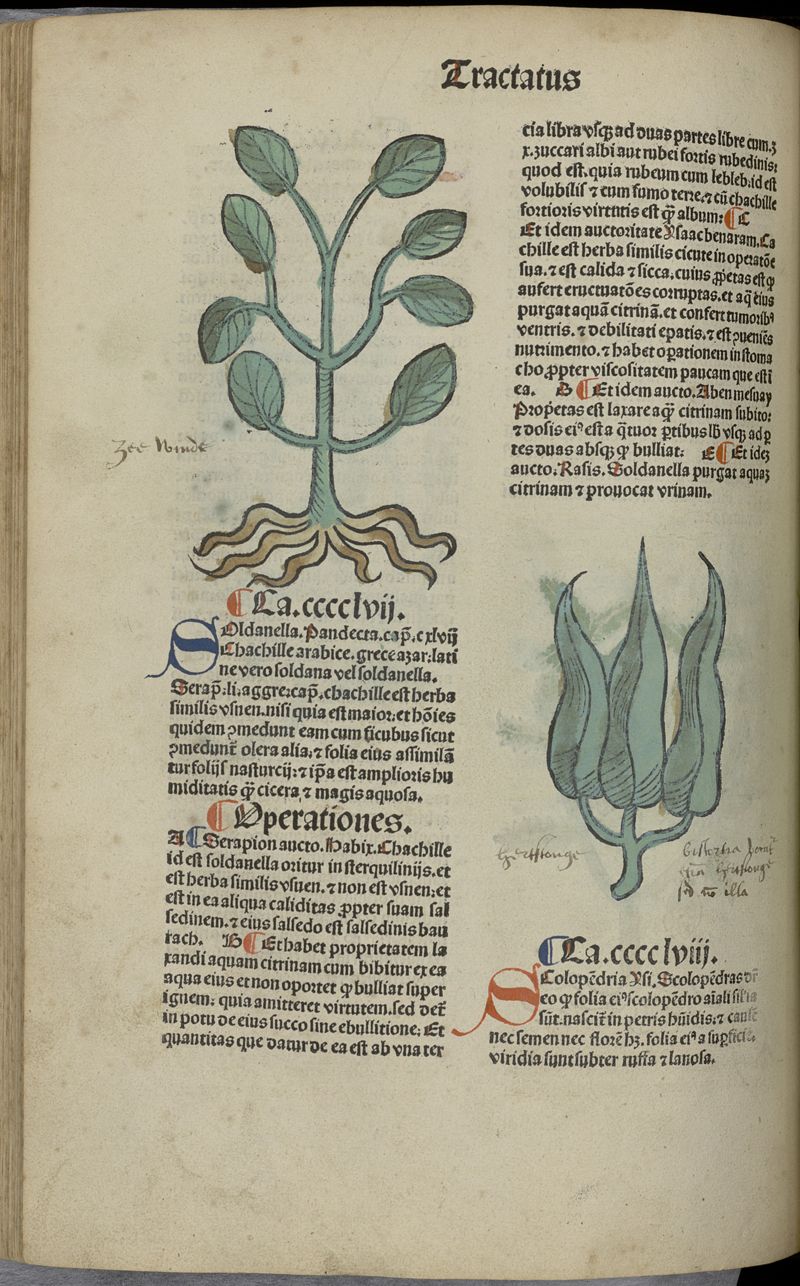 Tractatus
Zee Winde
Ca.cccclvij.
SOldanella.Pandecta.cap̄.cxlvij
Chachille arabice.grece azar:lati
ne vero soldana vel soldanella.
Serap̄.li.aggre:cap̄.chachille est herba
similis vsuen.nisi quia est maior:et hōies
quidem ꝯmedunt eam cum ficubus sicut
ꝯmedunt̄ olera alia:⁊ folia eius assimilā
tur folijs nasturcij:⁊ ip̄a est amplioris hu
miditatis q̄ cicera,⁊ magis aquosa.
Operationes.
A Serapion aucto.Habix.Chachille
id est soldanella oritur in sterquilinijs.et
est herba similis vsuen.⁊ non est vsuen:et
est in ea aliqua caliditas ꝓpter suam sal
sedinem.⁊ eius salsedo est salsedinis bau
rach. B Et habet proprietatem la
xandi aquam citrinam cum bibitur ex ea
aqua eius et non oportet ꝙ bulliat super
ignem: quia amitteret virtutem.sed det̄
in potu de eius succo sine ebullitione: Et
quantitas que datur de ea est ab vna ter
tia libra vsqꝫ ad duas partes libre cum.ꝫ
x.zuccari albi aut rubei fortis rubedinis:
quod est.quia rubeum cum lebleb.id est
volubilis ⁊ cum fumo terre.⁊ cū chachille
fortioris virtutis est q̄ album: C
Et idem auctoritate Ysaac benaram.Ca
chille est herba similis cicute in operatōe
sua.⁊ est calida ⁊ sicca.cuius ꝓpetas est ꝙ
aufert eructuatōes corruptas.et aq̄ eius
purgat aquā citrinā.et confert tumoribꝰ
ventris.⁊ debilitati epatis.⁊ est ꝯueniēs
nutrimento.⁊ habet oꝑationem in stoma
cho ꝓpter viscositatem paucam que est ī
ea. D Et idem aucto.Aben mesuay
Prop̄etas est laxare aq̄ citrinam subito:
⁊ dosis eiꝰ est a q̄tuor ꝑtibus lb̄ vsqꝫ ad ꝑ
tes duas absqꝫ ꝙ bulliat: E Et ideꝫ
aucto.Rasis.Soldanella purgat aquaꝫ
citrinam ⁊ prouocat vrinam.
hertstonge
illa
Ca.cccclviij.
SColopēdria Ysi.Scolopēdras dr̄
eo ꝙ folia eiꝰ scolopēdro aīali silia
sūt.nascit̄ in petris hūidis:⁊
nec semen nec florē hꝫ.folia eiꝰ a suꝑficie
viridia sunt subter ruffa ⁊ lanosa.